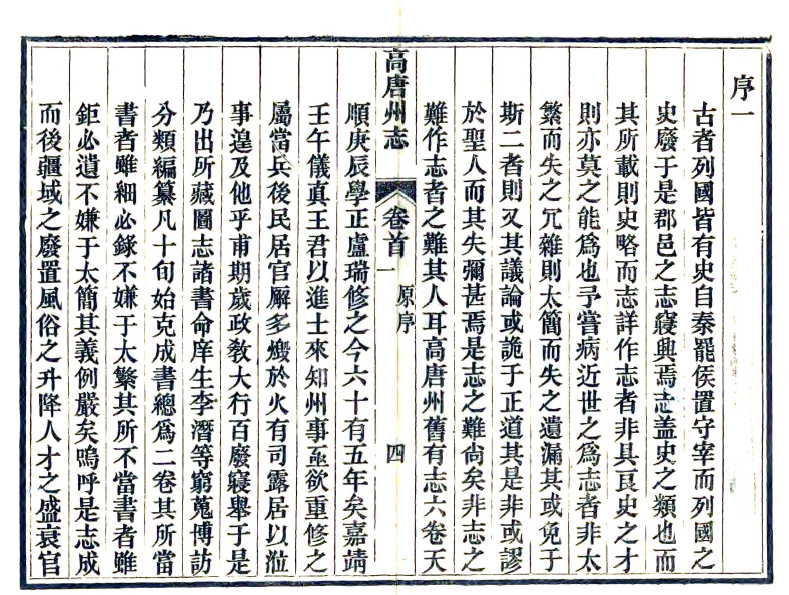 序一
古者列國皆有史自秦罷侯置守宰而列國之
史廢于是郡邑之志寖興焉志盖史之類也而
其所載則史略而志詳作志者非具良史之才
則亦莫之能爲也予嘗病近世之爲志者非太
繁而失之冗雜則太簡而失之遺漏其或免于
斯二者則又其議論或詭于正道其是非或謬
於聖人而其失彌甚焉是志之難尙矣非志之
難作志者之難其人耳高唐州舊有志六卷天
高唐州志
卷首
一
原序
四
順庚辰學正盧瑞修之今六十有五年矣嘉靖
壬午儀真王君以進士來知州事亟欲重修之
屬當兵後民居官廨多燬於火有司露居以涖
事遑及他乎甫期歲政敎大行百廢寖舉于是
乃出所藏圖志諸書命庠生李潛等窮蒐博訪
分類編纂凡十旬始克成書總爲二卷其所當
書者雖細必錄不嫌于太繁其所不當書者雖
鉅必遺不嫌于太簡其義例嚴矣嗚呼是志成
而後疆域之廢置風俗之升降人才之盛衰官